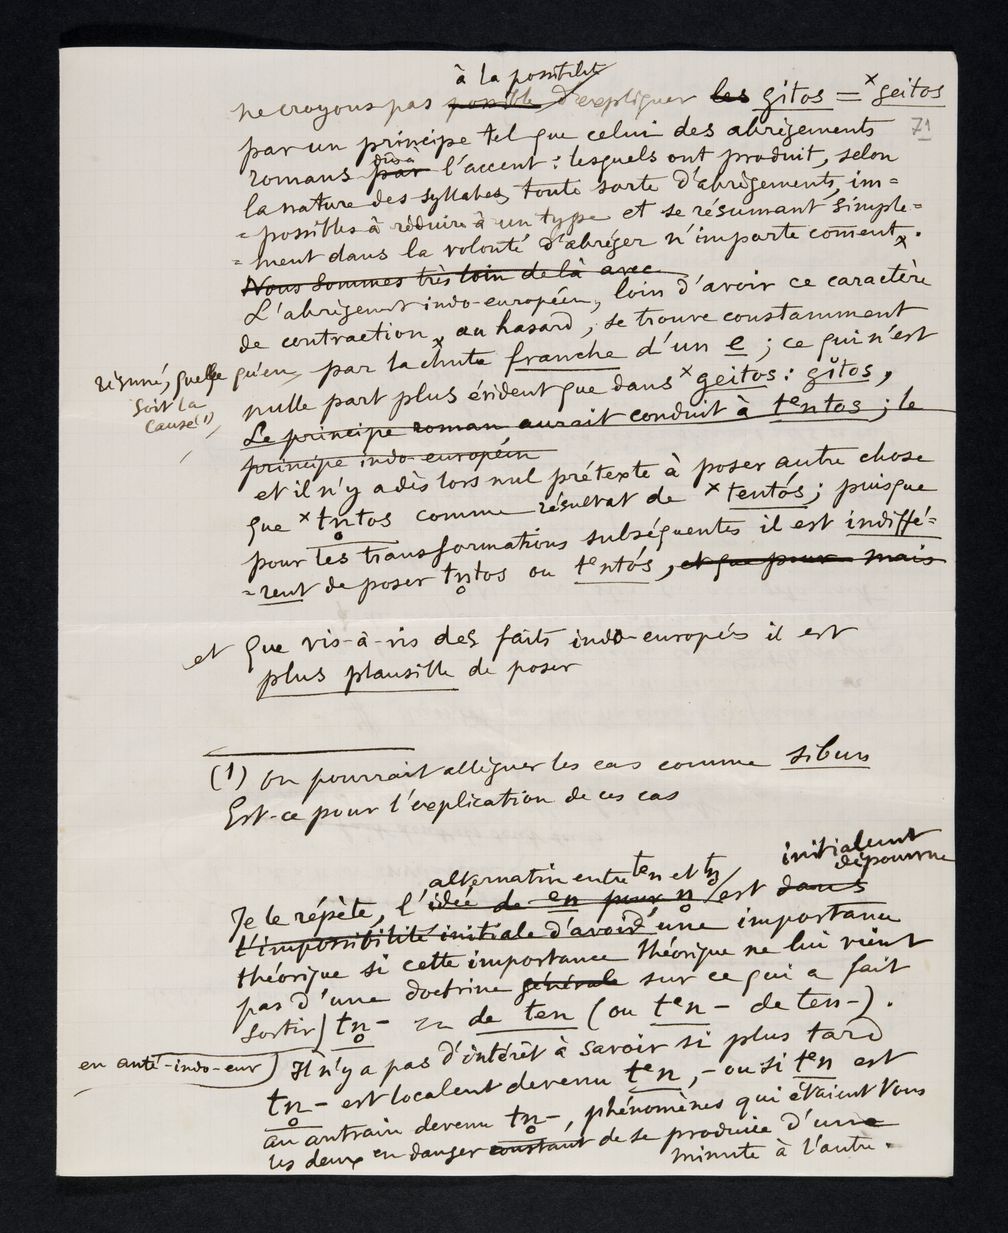 à la possibilité
ne croyons pas possible d'expliquer les gitos = ˣgeitos
71
par un principe tel que celui des abrègements
romans par l'accent : lesquels ont produit, selon
la nature des syllabes toute sorte d'abrègements, im=
=possibles à réduire à un type et se résumant simple=
=ment dans la volonté d'abréger n'importe coment.
Nous sommes très loin de là avec
L'abrègemt indo-européen, loin d'avoir ce caractère
de contraction au hasard, se trouve constamment
résumé, quelle qu'en par la chute franche d'un e ; ce qui n'est
soit la
cause(1)
nulle part plus évident que dans ˣgeitos : gĭtos,
Le principe roman aurait conduit à tᵉntos ; le
principe indo-européen
et il n'y a dès lors nul prétexte à poser autre chose
que ˣtn̥tos comme résultat de ˣtentós ; puisque
pour les transformations subséquentes il est indiffé=
=rent de poser tn̥tos ou tᵉntós, et que pour mais
et que vis-à-vis des faits indo-européens il est
plus plausible de poser
(1) On pourrait alléguer les cas comme sibun
Est-ce pour l'explication de ces cas
alternatin entre tᵉn et tn̥
initialemt
dépourvue
Je le répète, l'idée de ᵉn pour n̥ est dans
l'impossibilité initiale d'avoir d'une importance
théorique si cette importance théorique ne lui vient
pas d'une doctrine générale sur ce qui a fait
sortir tn̥- de ten (ou tᵉn- de ten-).
en anté-indo-eur Il n'y a pas d'intérêt à savoir si plus tard
tn̥- est localemt devenu tᵉn,- ou si tᵉn est
au contraire devenu tn̥-, phénomènes qui étaient tous
les deux en danger constant de se produire d'une
minute à l'autre.